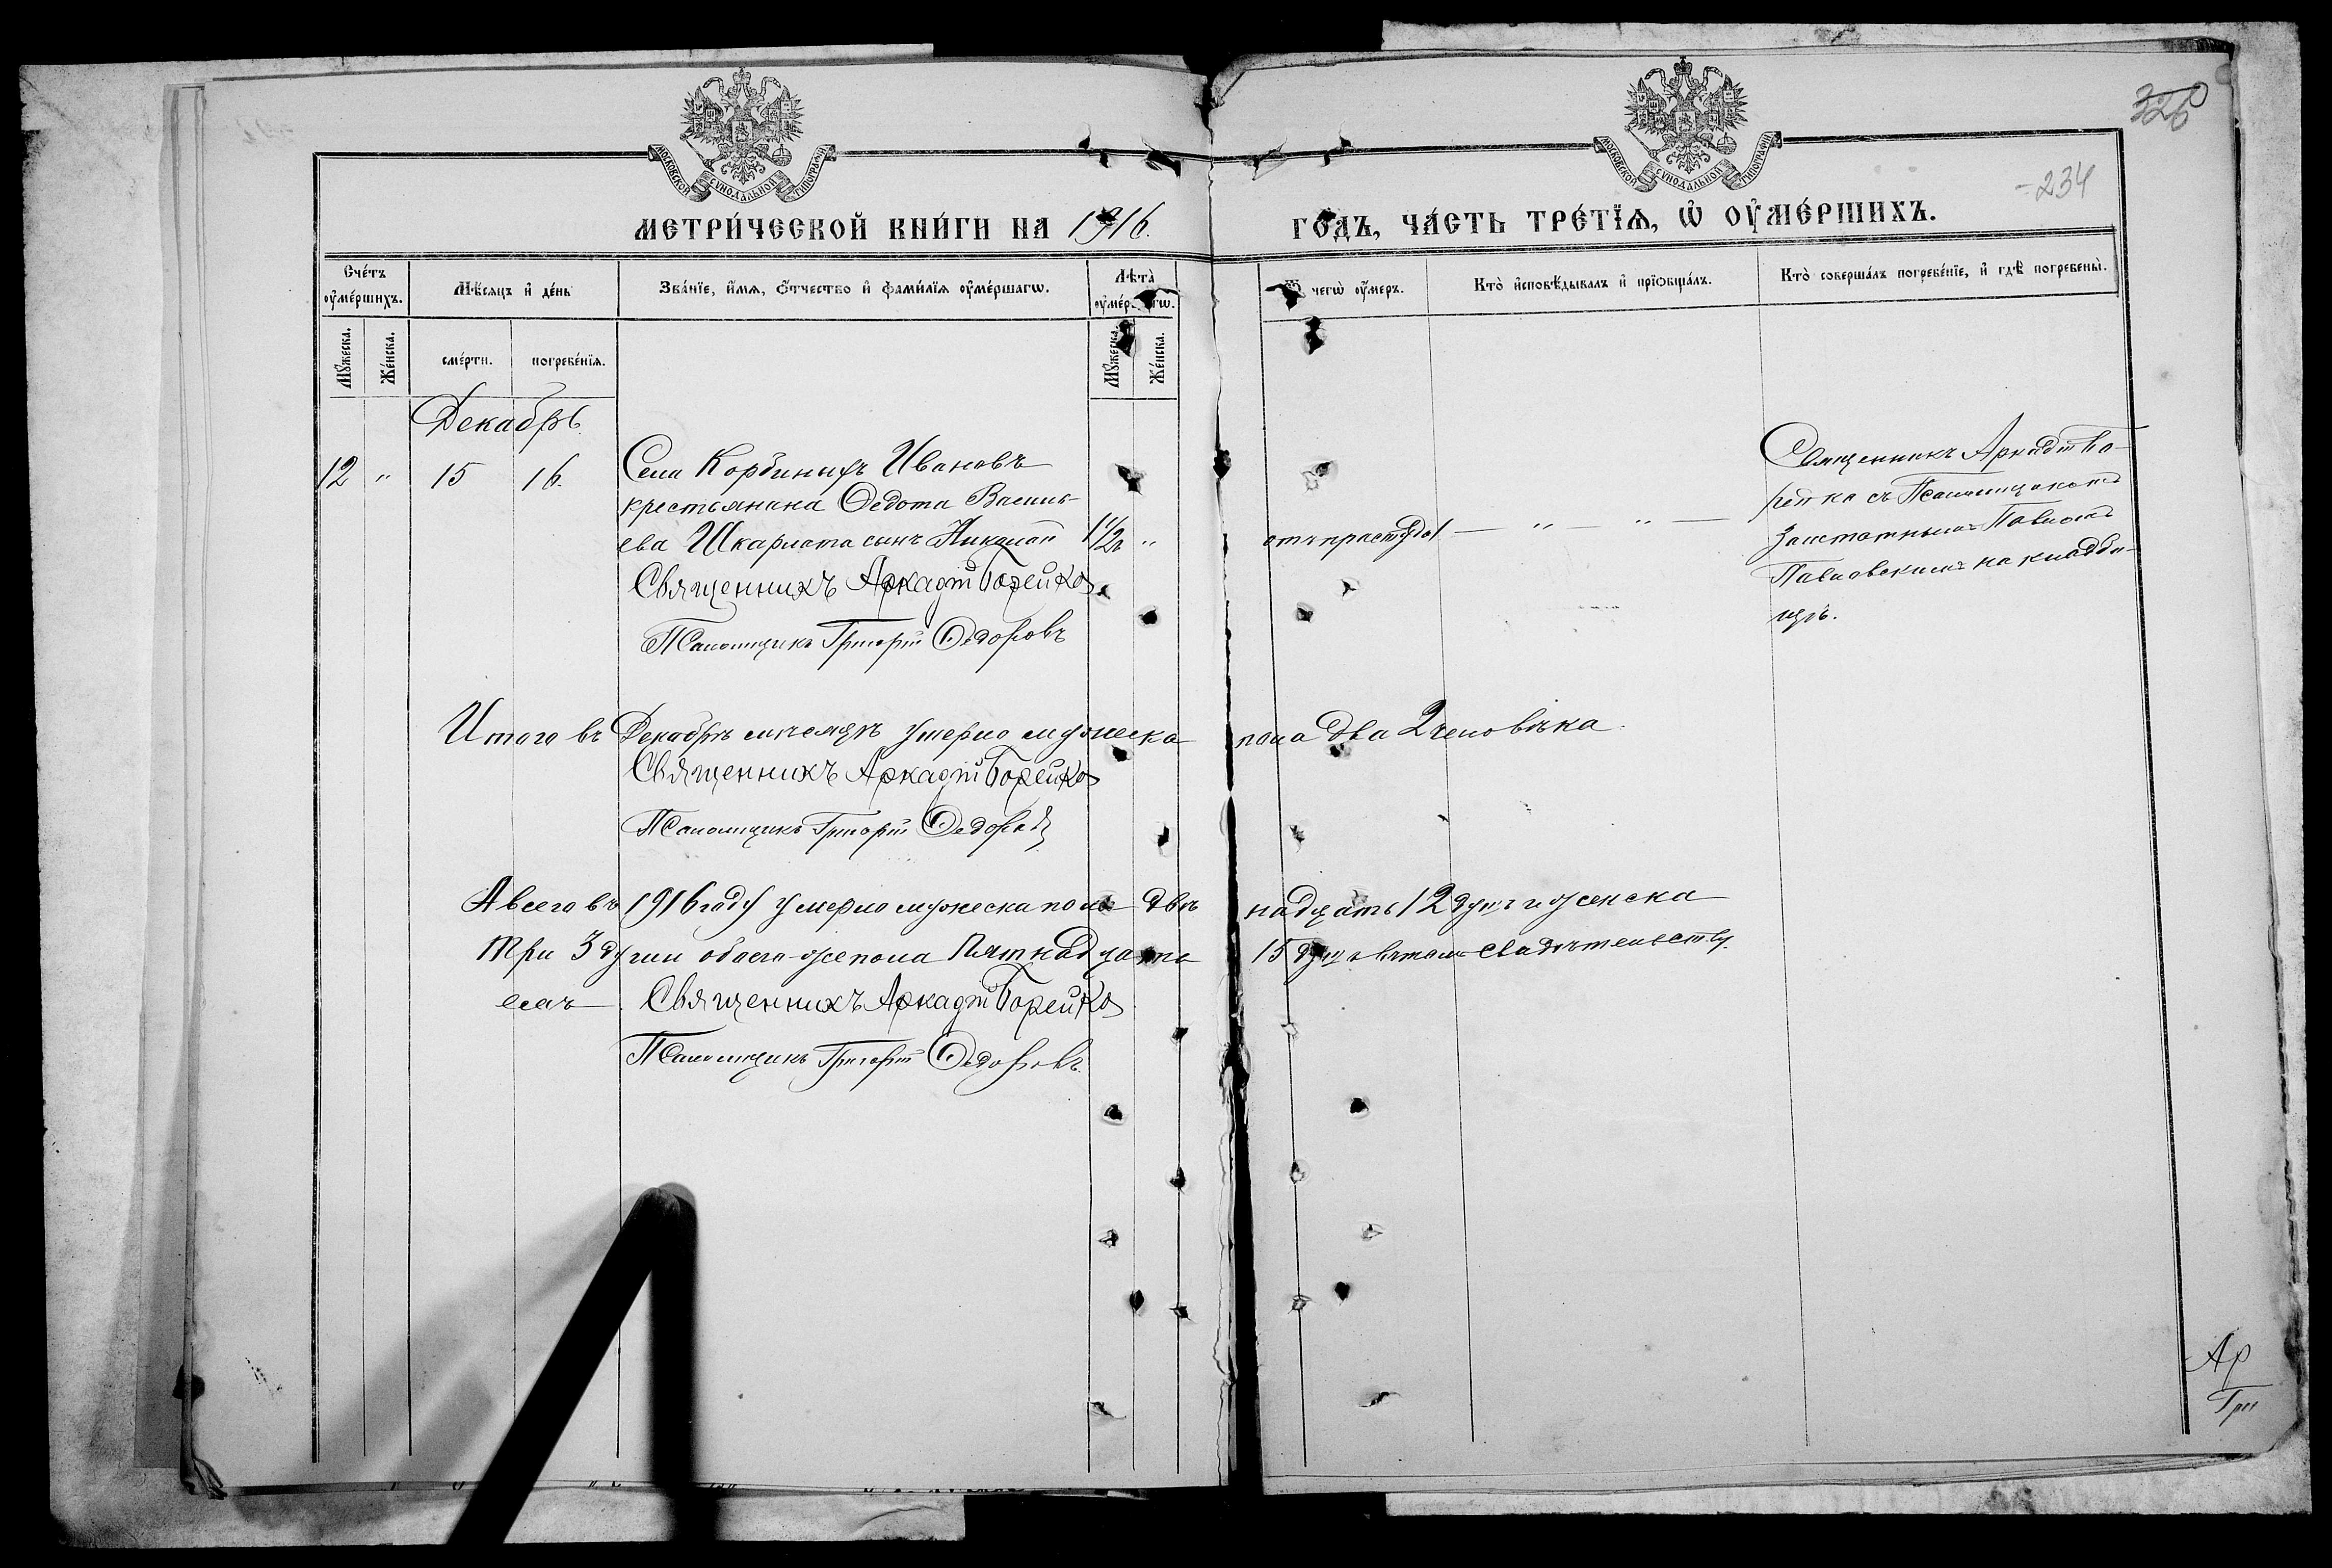 МОСКОВСКОЙ СѴНОДАЛЬНОЙ ТИПОГРАФІИ
МОСКОВСКОЙ СѴНОДАЛЬНОЙ ТИПОГРАФІИ
326
234
МЕТРИ́ЧЕСКОЙ КНИ́ГИ НА 1916. ГО́ДЪ, ЧА́СТЬ ТРЕ́ТЇѦ, Ѡ҆ ОУ҆МЕ́РШИХЪ.
Сче́тъ оу҆ме́ршихъ.
Мѣ́сѧцъ и҆ де́нь
Зва́нїе, и҆́мѧ, ѻ҆́тчество и҆ фами́лїѧ оу҆ме́ршагѡ.
Лѣ̀та оу҆ме́ршагѡ.
Ѿ чегѡ̀ оу҆́меръ.
Кто̀ и҆сповѣ́дывалъ и҆ прїѡбща́лъ.
Кто̀ соверша́лъ погребе́нїе, и҆ гдѣ̀ погребены̀.
Мꙋ́жеска.
Же́нска.
сме́рти.
погребе́нїѧ.
Мꙋ́жеска.
Же́нска.
Декабрь
12 " 15 16. Села Корбиныхъ Ивановъ
крестьянина Ѳедота Василь-
ева Шкарлата сынъ Николай 1 1/2 " отъ простуды — " — " —
Священникъ Аркадій Бо-
рейко съ Псаломщикомъ
Заштатнымъ Павломъ
Павловскимъ на кладби-
щѣ.
Священникъ Аркадій Борейко
Псаломщикъ Григорій Ѳедоровъ
Итого въ Декабрѣ мѣсяцѣ умерло мужеска пола два 2 человѣка.
Священникъ Аркадій Борейко
Псаломщикъ Григорій Ѳедоровъ
А всего въ 1916 году умерло мужеска пола двѣнадцать 12 душъ и женска
три 3 души обоего же пола пятнадцать 15 душъ въ томъ свидѣтельству
емъ
Священникъ Аркадій Борейко
Псаломщикъ Григорій Ѳедоровъ.
Ар
Гри